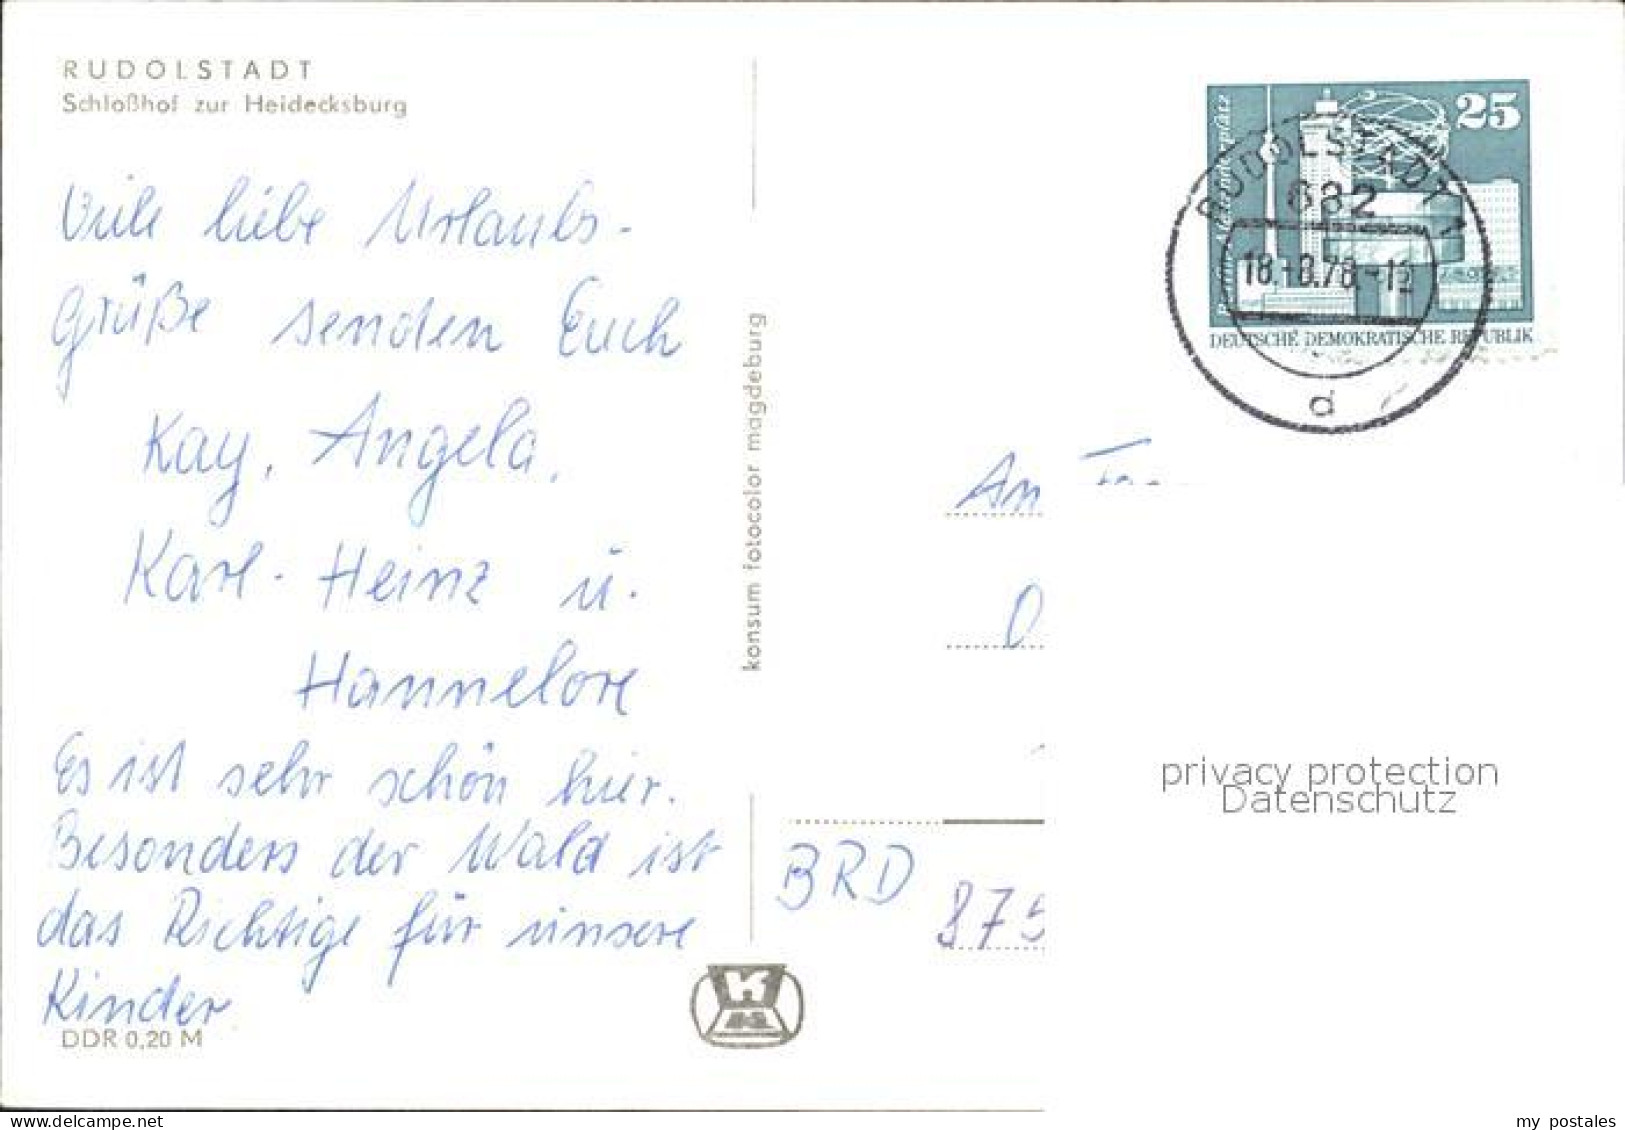 RUDOLSTADT
Schloßhof zur Heidecksburg
Viele liebe Urlaubs-
grüße senden Euch
Kay, Angela,
Karl-Heinz u.
Hannelore
Es ist sehr schön hier.
Besonders der Wald ist
das Richtige für unsere
Kinder
DDR 0,20 M
konsum fotocolor magdeburg
K
25
Berlin, Alexanderplatz
DEUTSCHE DEMOKRATISCHE REPUBLIK
RUDOLSTADT 1
682
18.-8.78.-12
d
An
BRD
875
privacy protection
Datenschutz
my postales
www.delcampe.net